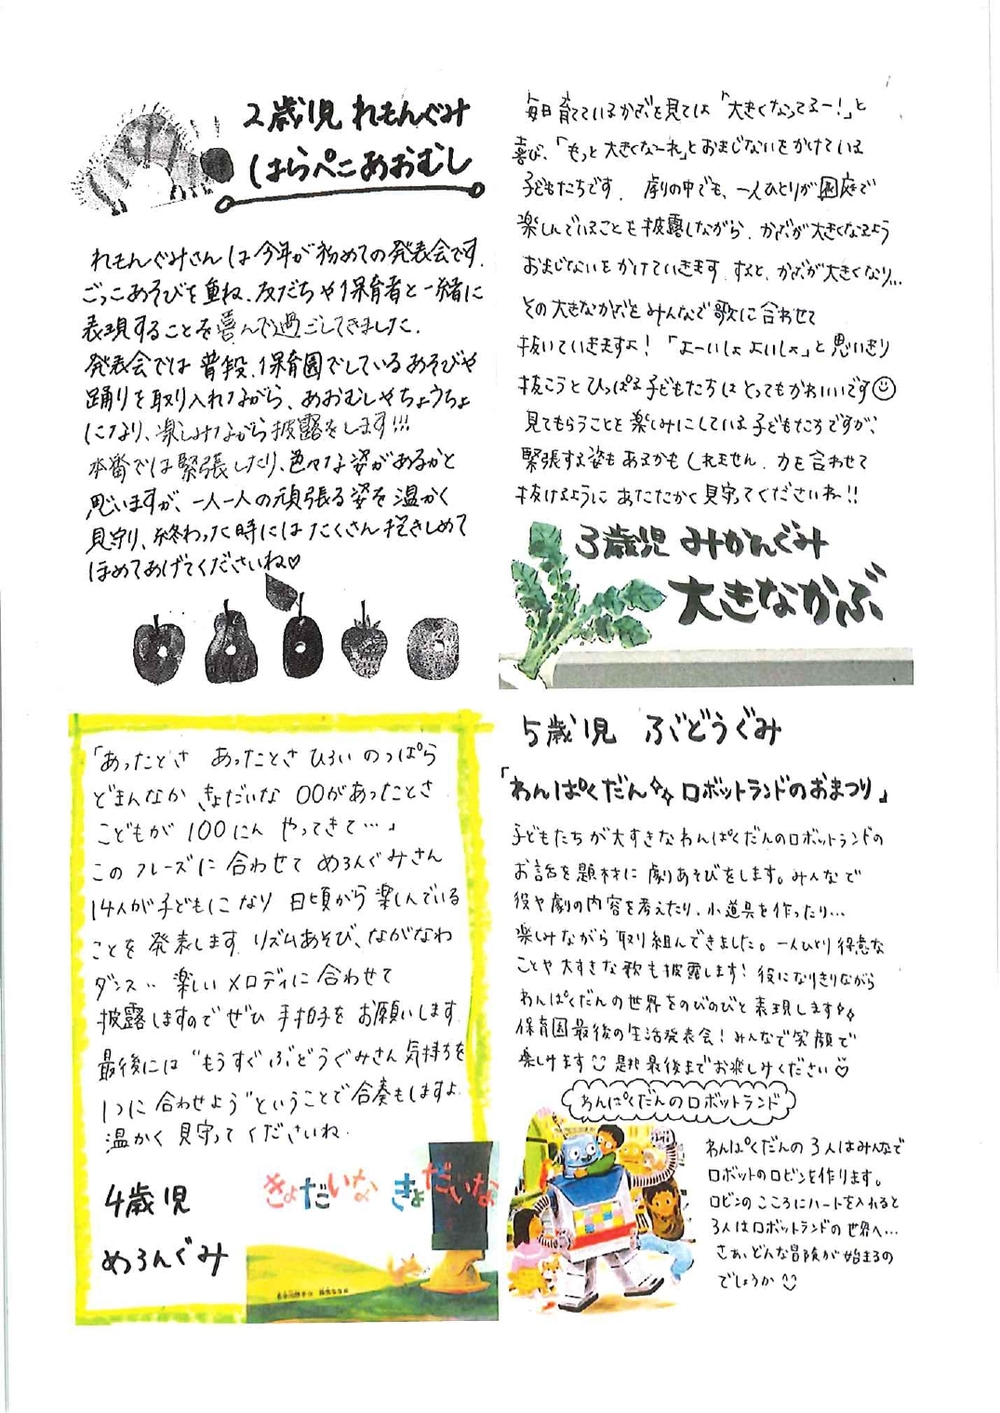 2歳児 れもんぐみ
はらぺこあおむし
れもんぐみさんは今年が初めての発表会です.
ごっこあそびを重ね、友だちや保育者と一緒に
表現することを喜んで過ごしてきました.
発表会では普段、保育園でしているあそびや
踊りを取り入れながら、あおむしやちょうちょ
になり、楽しみながら披露をします!!!
本番では緊張したり、色々な姿があるかと
思いますが、一人一人の頑張る姿を温かく
見守り、終わった時にはたくさん抱きしめて
ほめてあげてくださいね♡
毎日育てているかぶを見ては「大きくなってるー!」と
喜び、「もっと大きくな〜れ」とおまじないをかけている
子どもたちです. 劇の中でも、一人ひとりが園庭で
楽しんでいることを披露しながら、かぶが大きくなるよう
おまじないをかけていきます. すると、かぶが大きくなり...
その大きなかぶをみんなで歌に合わせて
抜いていきますよ!「よーいしょ よいしょ」と思いきり
抜こうとひっぱる子どもたちはとってもかわいいです☺
見てもらうことを楽しみにしている子どもたちですが、
緊張する姿もあるかもしれません. 力を合わせて
抜けるように あたたかく見守ってくださいね!!
3歳児 みかんぐみ
大きなかぶ
「あったとさ あったとさ ひろい のっぱら
どまんなか きょだいな ○○があったとさ
こどもが 100にん やってきて…」
このフレーズに合わせて めろんぐみさん
14人が子どもになり 日頃から楽しんでいる
ことを発表します. リズムあそび、ながなわ
ダンス.. 楽しいメロディに合わせて
披露しますのでぜひ手拍子をお願いします.
最後には“もうすぐぶどうぐみさん 気持ちを
1つに合わせよう”ということで合奏もしますよ.
温かく見守ってくださいね.
4歳児
めろんぐみ
きょだいな きょだいな
5歳児 ぶどうぐみ
「わんぱくだん ロボットランドのおまつり」
子どもたちが大すきなわんぱくだんのロボットランドの
お話を題材に劇あそびをします。みんなで
役や劇の内容を考えたり、小道具を作ったり…
楽しみながら取り組んできました。一人ひとり得意な
ことや大すきな歌も披露します! 役になりきりながら
わんぱくだんの世界をのびのびと表現します
保育園最後の生活発表会! みんなで笑顔で
楽しけます☺ 是非最後までお楽しみください♡
わんぱくだんのロボットランド
わんぱくだんの3人はみんなで
ロボットのロビンを作ります。
ロビンのこころにハートを入れると
3人はロボットランドの世界へ…
さあ、どんな冒険が始まるの
でしょうか☺